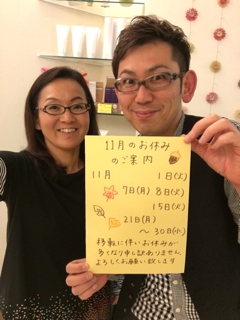 11月のお休み
のご案内
11月 1日(火)
7日(月) 8日(火)
15日(火)
21日(月)
〜30日(水)
移転に伴いお休みが
多くなり申し訳ありません
よろしくお願い致します